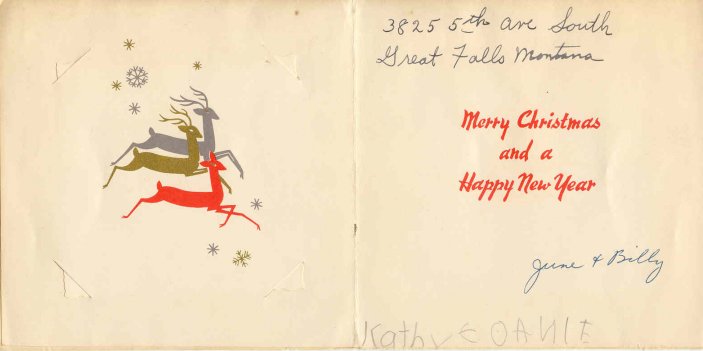 3825 5th Ave South
Great Falls Montana
Merry Christmas
and a
Happy New Year
June & Billy
Kathy